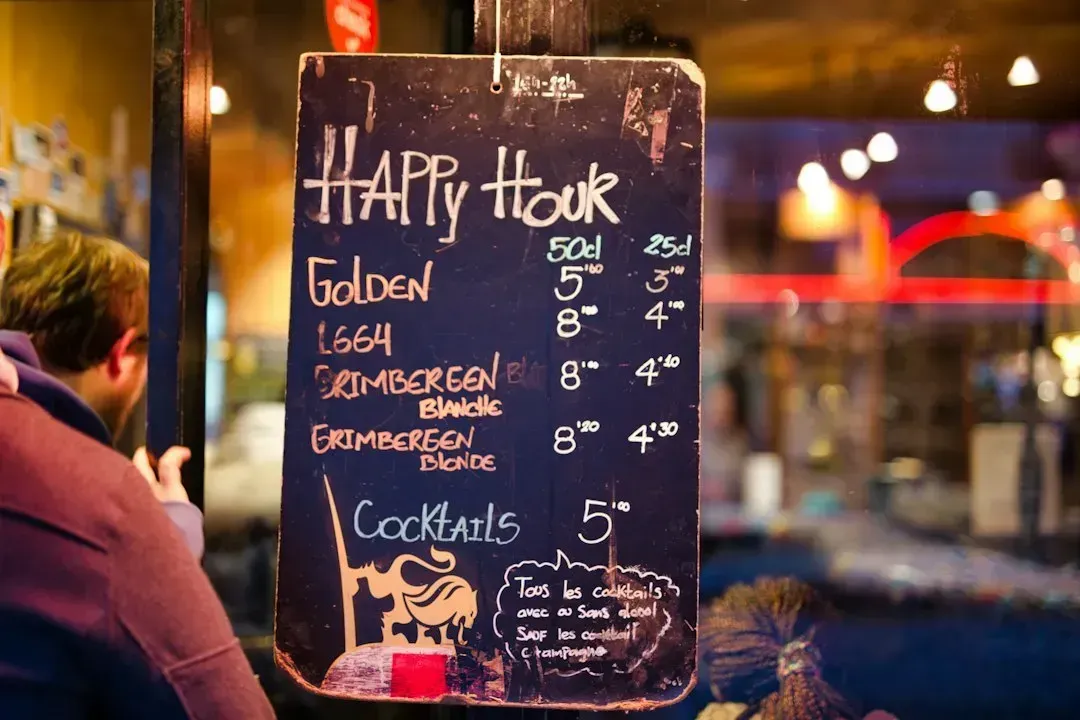 HAPPy HOUR
50cl 25cl
GOLDEN 5'00 3'00
1664 8'00 4'00
GRIMBERGEN 8'00 4'10
BLANCHE
GRIMBERGEN 8'20 4'30
BLONDE
COCKTAILS 5'00
TOUS les cocktails
avec ou Sans alcool
SAUF les cocktail
Champagne